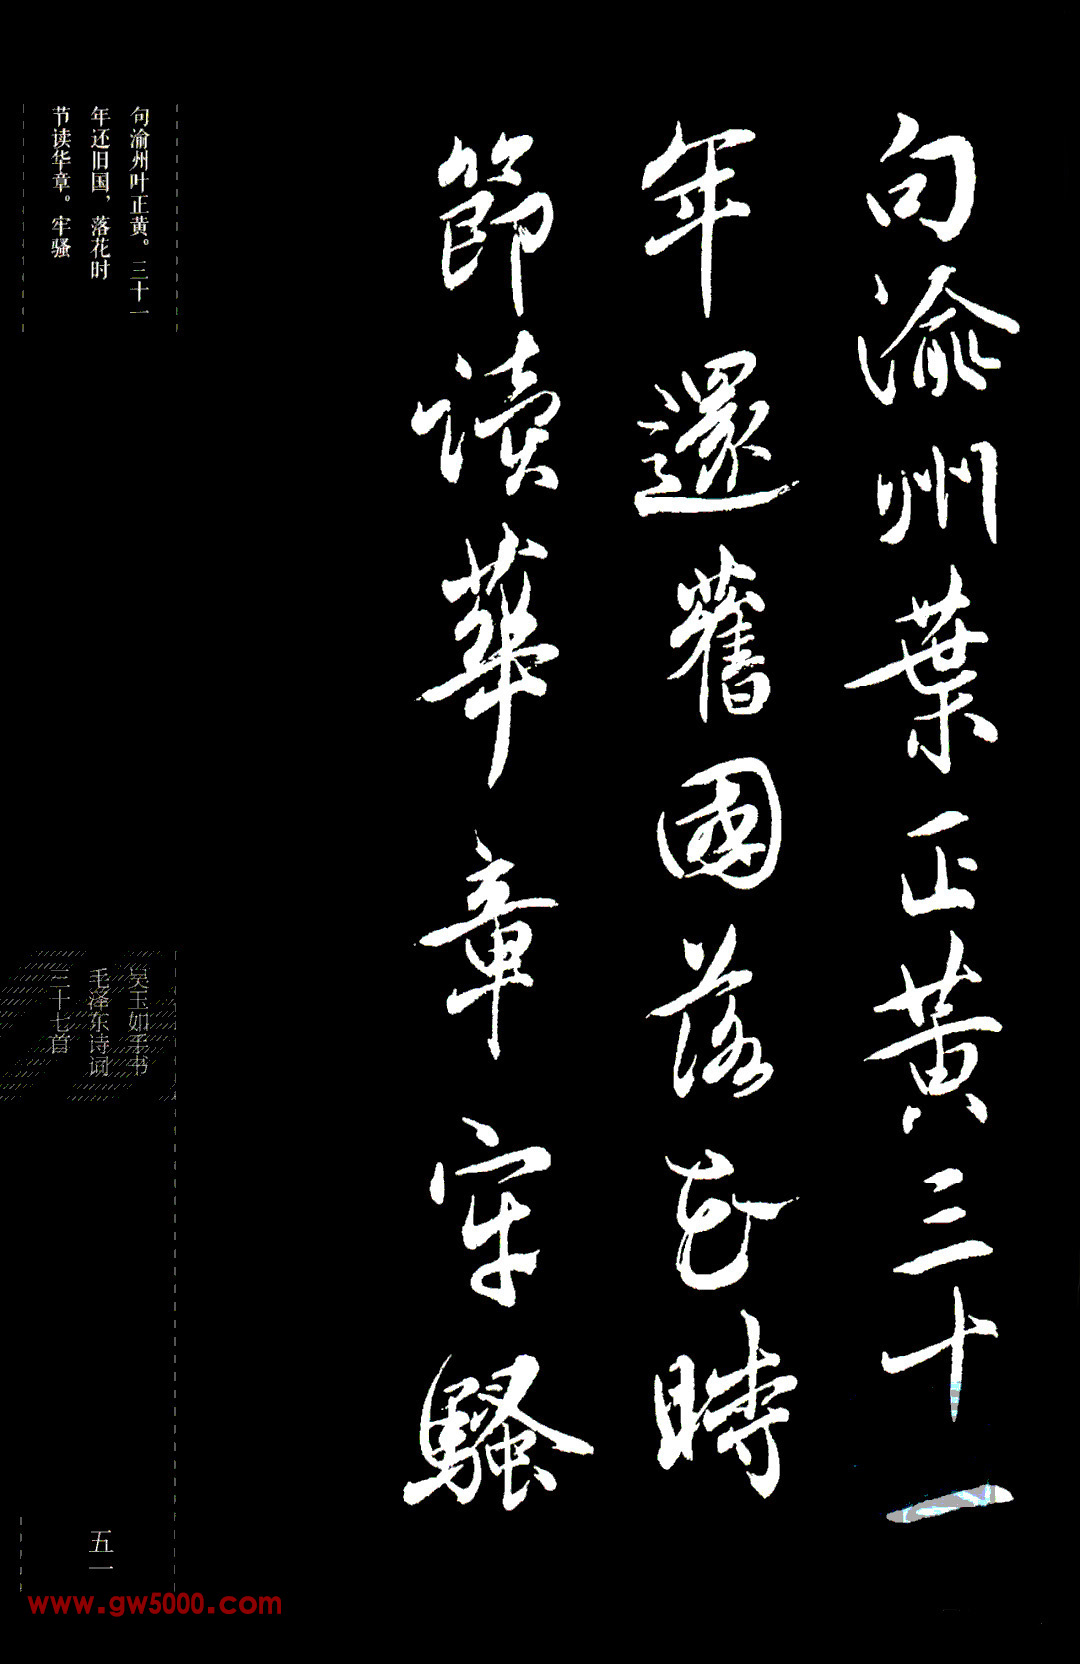 句渝州葉正黃三十一
年還舊國落花時
節讀華章牢騷
句渝州叶正黄。三十一
年还旧国，落花时
节读华章。牢骚
吴玉如手书
毛泽东诗词
三十七首
五一
www.gw5000.com